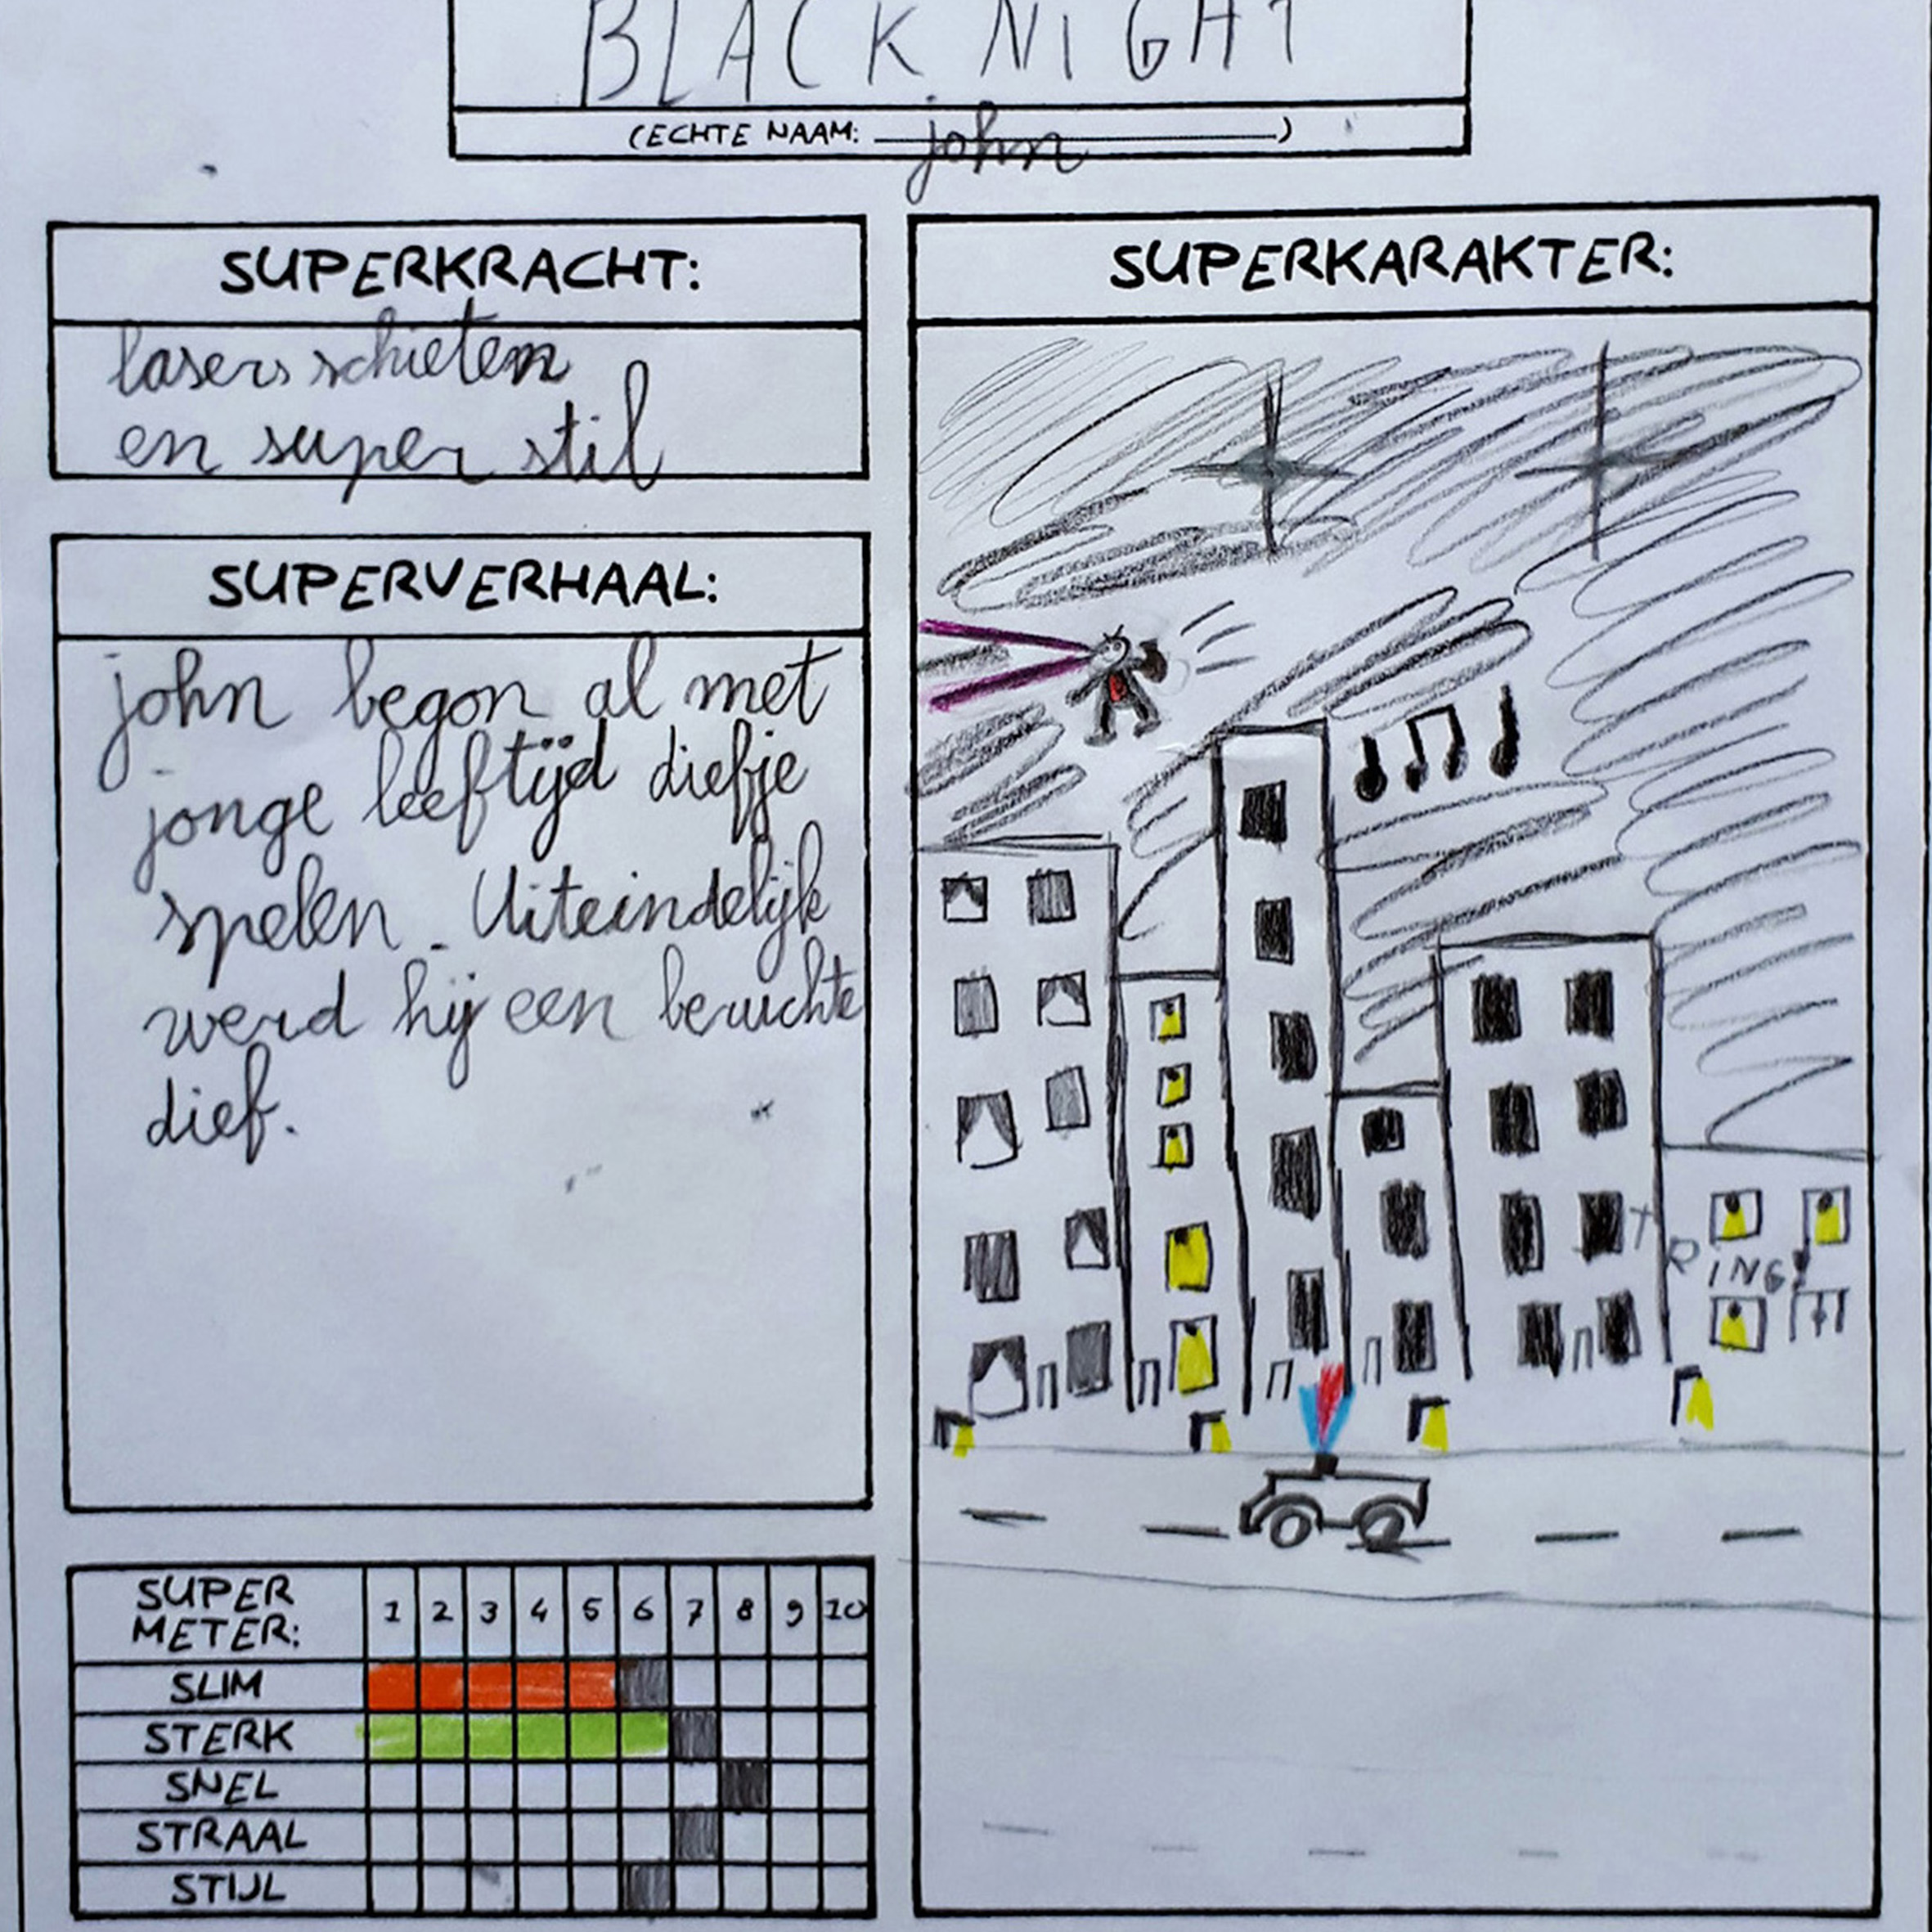 BLACK NIGHT
(ECHTE NAAM: john)
SUPERKRACHT:
lasers schieten
en super stil
SUPERVERHAAL:
john begon al met
jonge leeftijd diefje
spelen. Uiteindelijk
werd hij een beruchte
dief.
SUPER
METER: 1 2 3 4 5 6 7 8 9 10
SLIM
STERK
SNEL
STRAAL
STIJL
SUPERKARAKTER:
TRING!